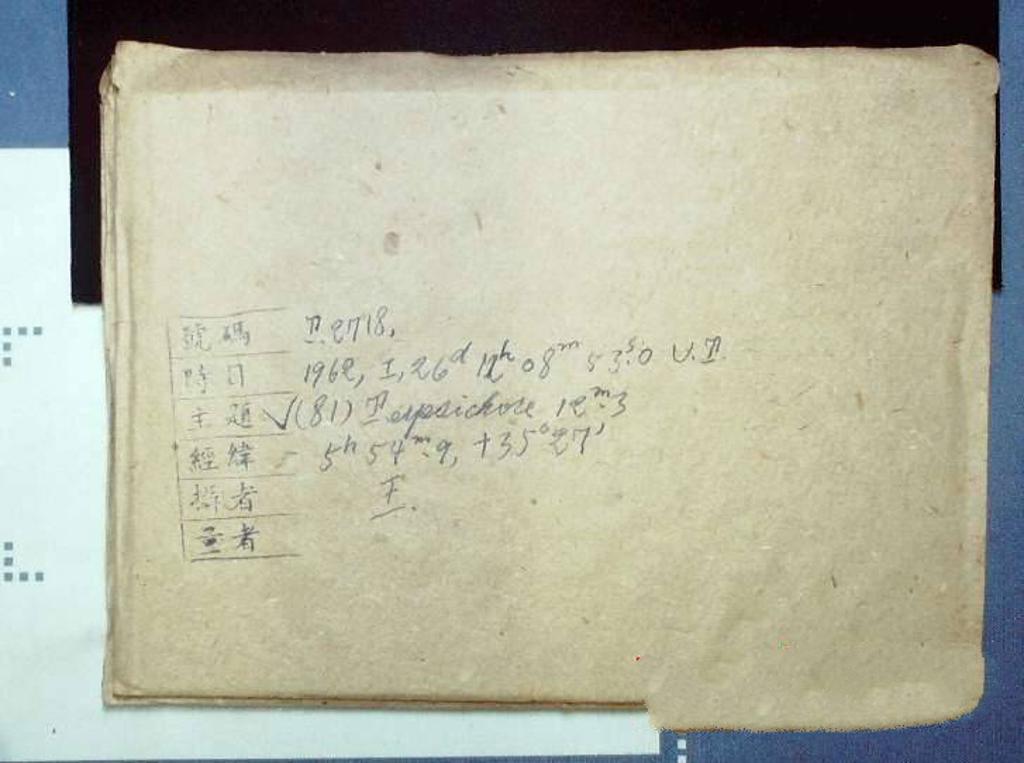 號碼 T.2718.
時日 1962, I, 26d 12h 08m 53s.0 U.T.
主題 √(81) Terpsichore 12m.3
經緯 5h 54m.9, +35°27'
攝者
量者